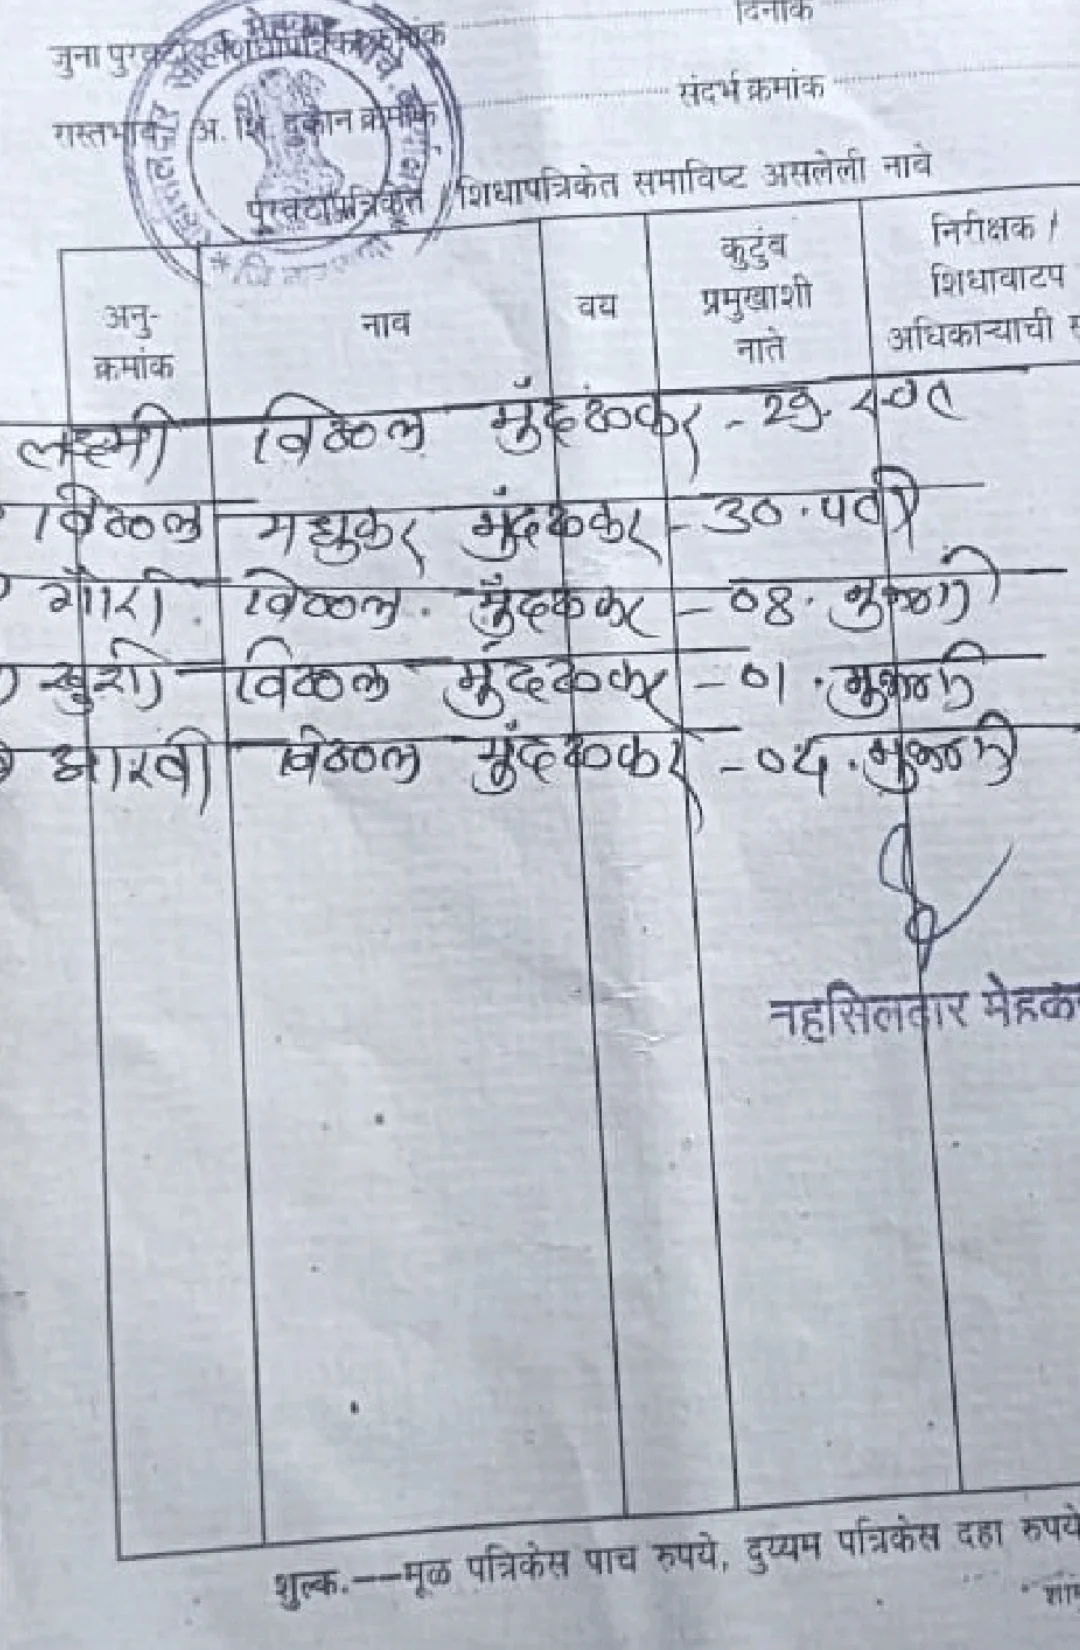 दिनांक
जुना पुरवठा शिधापत्रिका क्रमांक
संदर्भ क्रमांक
रास्तभाव अ. शि. दुकान क्रमांक
पुरवठापत्रिकेत / शिधापत्रिकेत समाविष्ट असलेली नावे
अनु-क्रमांक नाव वय कुटुंब प्रमुखाशी नाते निरीक्षक / शिधावाटप अधिकाऱ्याची
लक्ष्मी विठ्ठल मुंदळकर - 29.
विठ्ठल मधुकर मुंदळकर - 30. पती
गौरी विठ्ठल मुंदळकर - 04. मुलगी
खुशी विठ्ठल मुंदळकर - 01. मुलगी
आरवी विठ्ठल मुंदळकर - 06. मुलगी
तहसिलदार मेहकर
शुल्क.—मूळ पत्रिकेस पाच रुपये, दुय्यम पत्रिकेस दहा रुपये